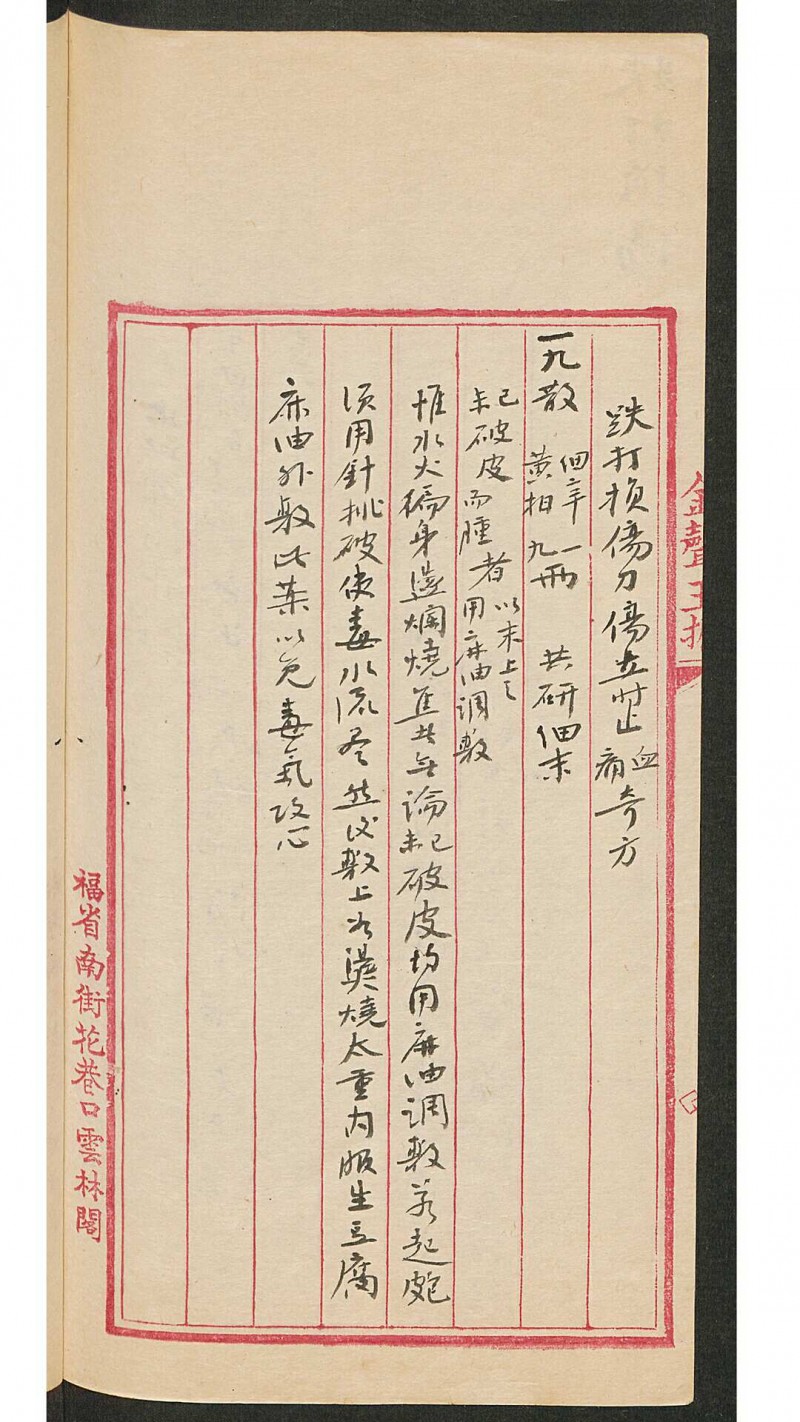 跌打損傷刀傷立止血痛奇方
一九散 細辛一两 黄柏九两 共研細末
已破皮者以末上之
未破皮而腫者用麻油調敷
惟水火燙身遭爛燒焦者無論已未破皮均用麻油調敷若起皰
須用針挑破使毒水流尽然後敷上如燙燒太重内服生豆腐
麻油外敷此葯以免毒氣攻心
金聲玉振
福省南街花巷口雲林閣